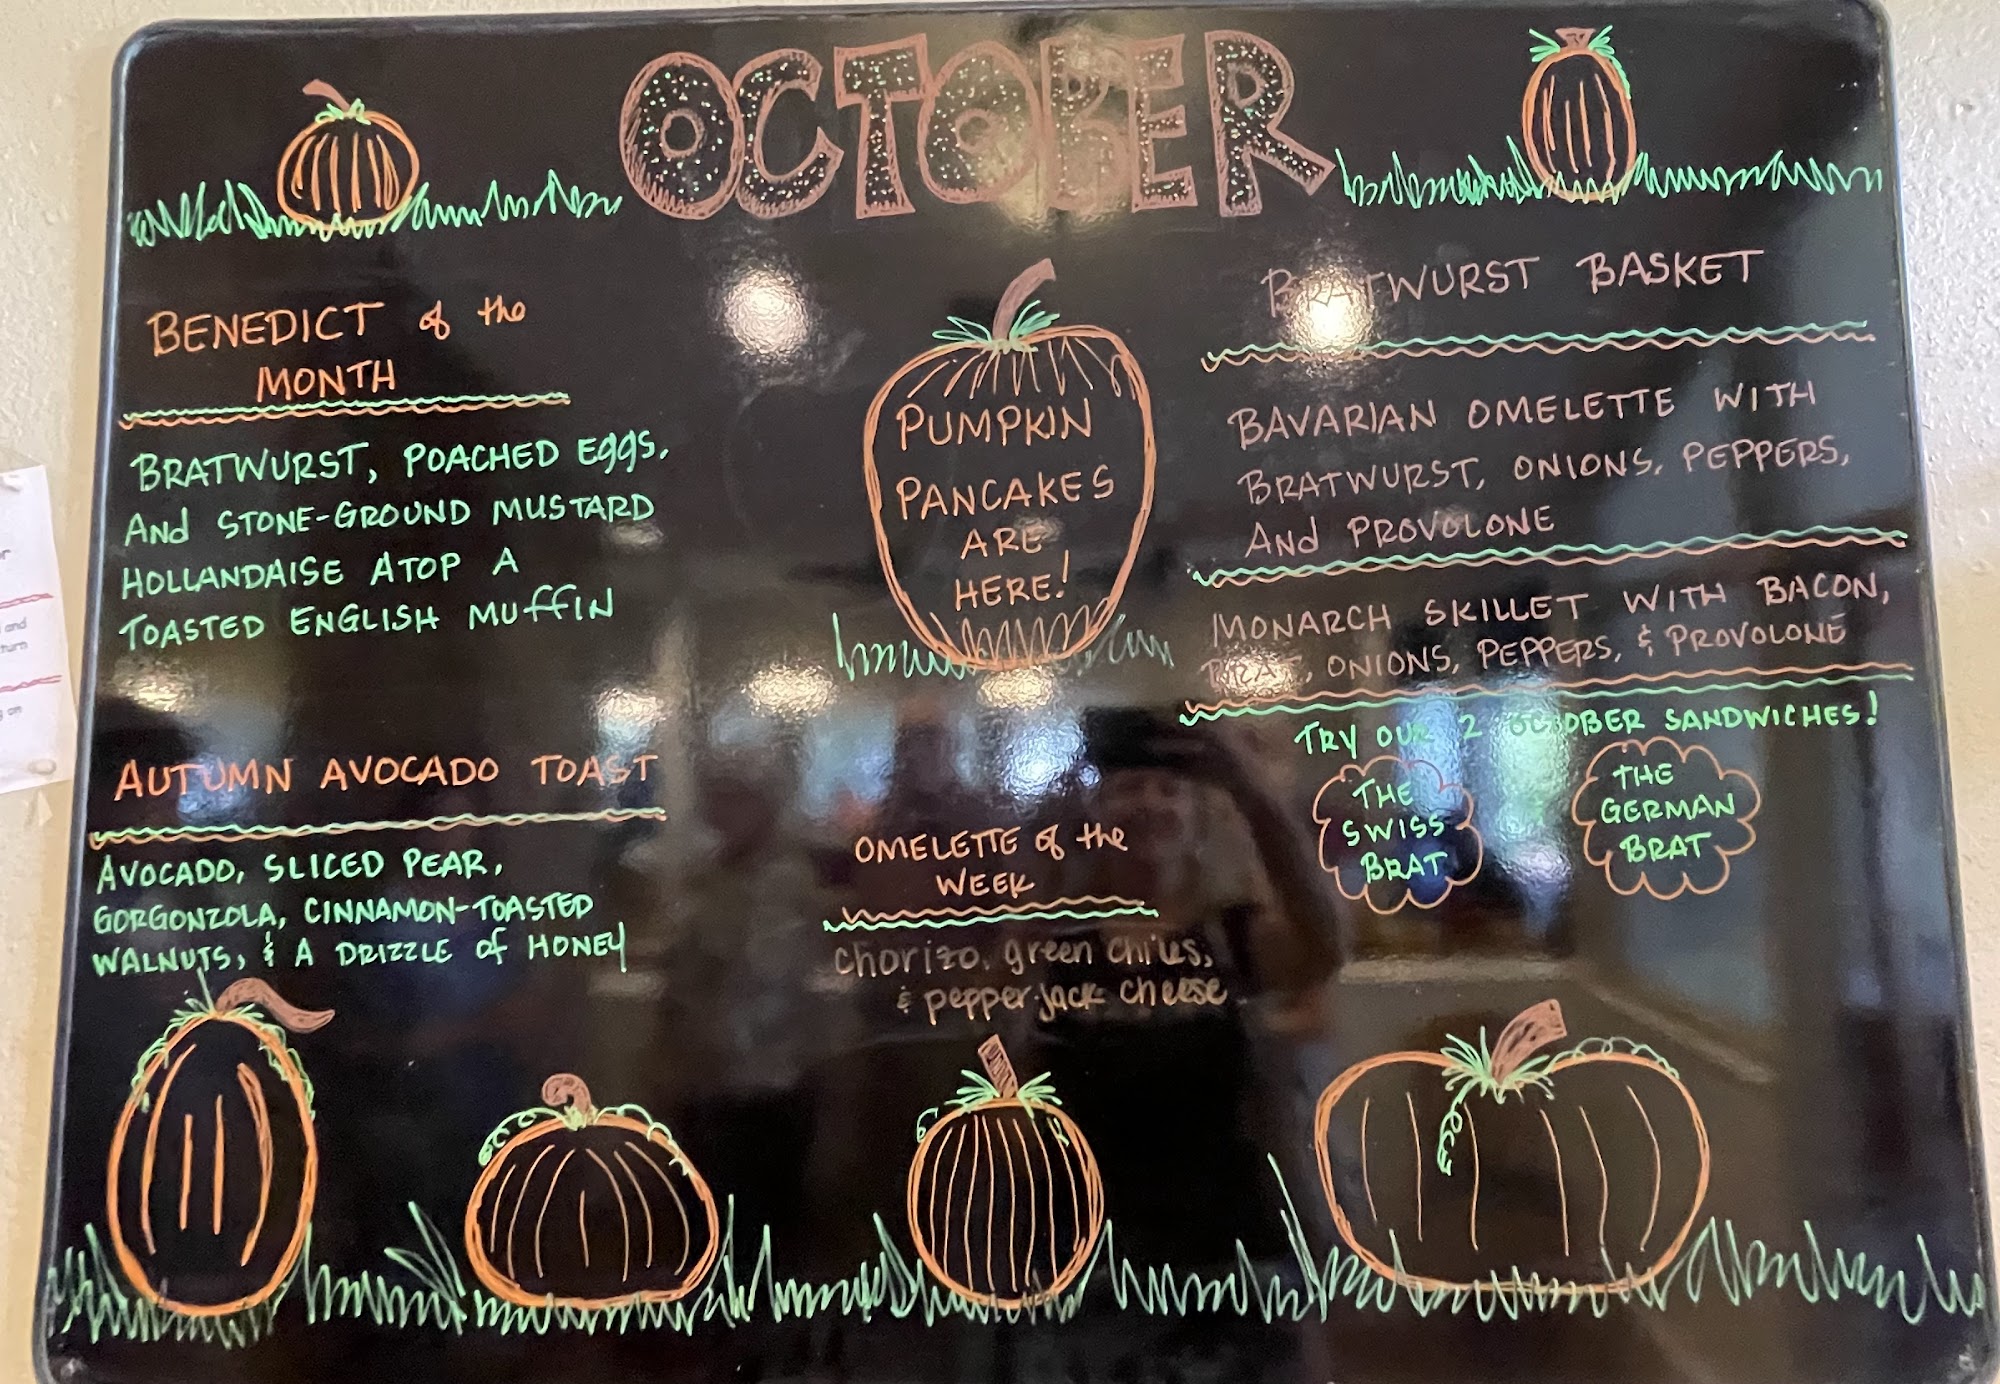 OCTOBER
BENEDICT of the
MONTH
BRATWURST, POACHED EggS,
ANd STONE-GROUND MUSTARD
HOLLANDAISE ATOP A
TOASTED ENGLISH MUffIN
AUTUMN AVOCADO TOAST
AVOCADO, SLICED PEAR,
GORGONZOLA, CINNAMON-TOASTED
WALNUTS, & A DRIZZLE of HONEY
PUMPKIN
PANCAKES
ARE
HERE!
OMELETTE of the
WEEK
chorizo, green chiles,
& pepper-jack cheese
BRATWURST BASKET
BAVARIAN OMELETTE WITH
BRATWURST, ONIONS, PEPPERS,
ANd PROVOLONE
MONARCH SKILLET WITH BACON,
BRAT, ONIONS, PEPPERS, & PROVOLONE
TRY OUR 2 OCTOBER SANDWICHES!
THE
SWISS
BRAT
THE
GERMAN
BRAT
and
turn
on